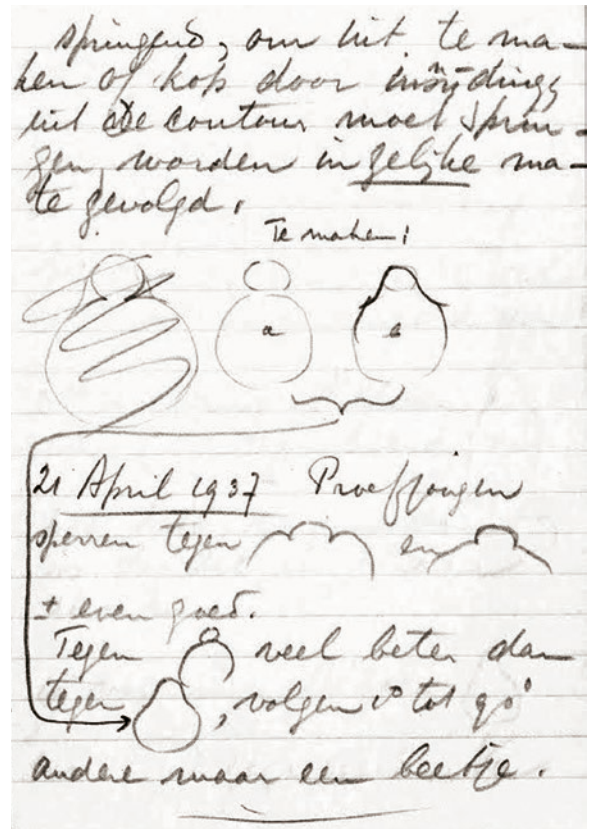 springend, om uit te ma-
ken of kop door insnijding
uit de contour moet sprin-
gen, worden in gelijke ma-
te gevolgd.
Te maken:
a b
21 April 1937 Proefjongen
sperren tegen en
± even goed.
Tegen veel beter dan
tegen , volgen tot 90°
andere maar een beetje.